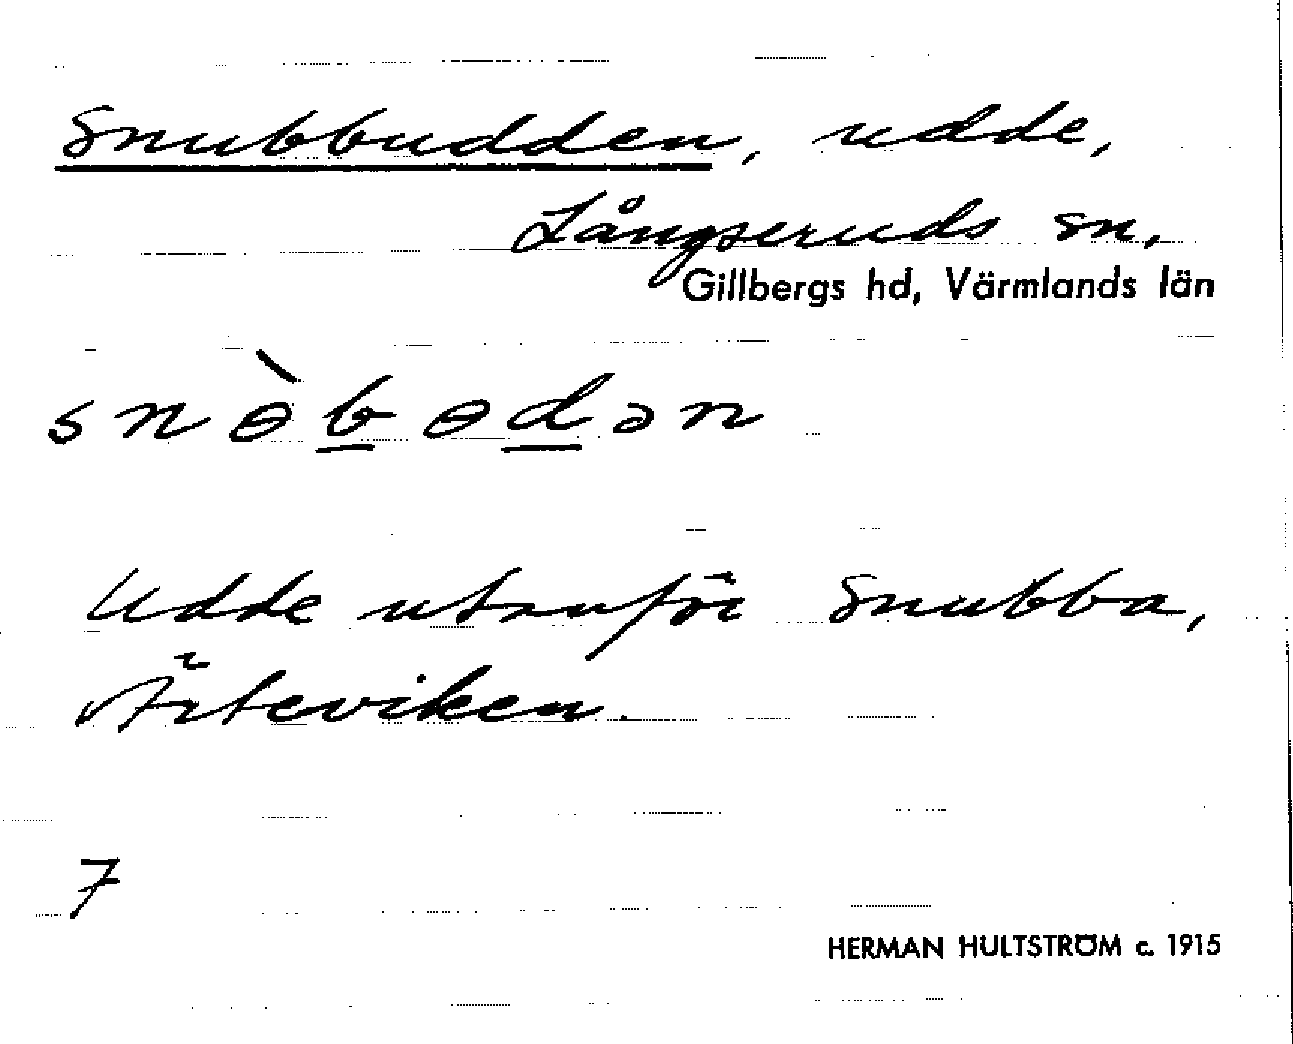 Snubbudden, udde,
Långseruds sn,
Gillbergs hd, Värmlands län
snɵ̀bɵdən
Udde utanför Snubba,
Ärteviken.
7
HERMAN HULTSTRÖM c. 1915